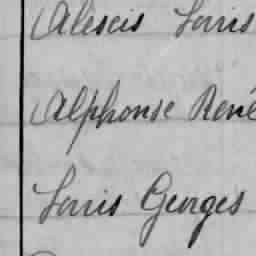 Alexis Louis
Alphonse René
Louis Georges